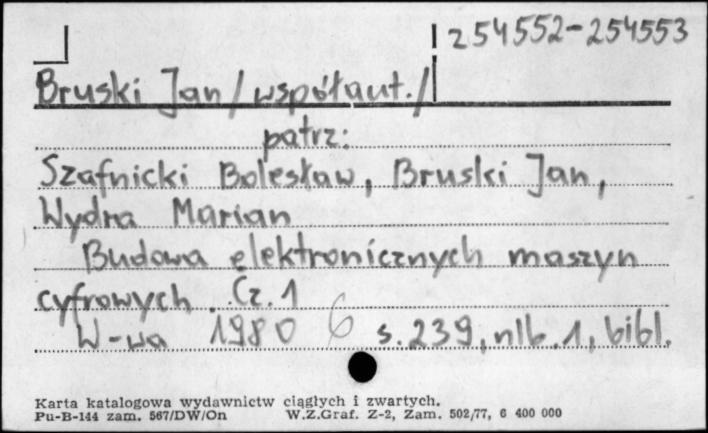 254552-254553
Bruski Jan /współaut./
patrz:
Szafnicki Bolesław, Bruski Jan,
Wydra Marian
Budowa elektronicznych maszyn
cyfrowych. Cz. 1
W-wa 1980 6 s. 239, nlb. 1, bibl.
Karta katalogowa wydawnictw ciągłych i zwartych.
Pu-B-144 zam. 567/DW/On W.Z.Graf. Z-2, Zam. 502/77, 6 400 000